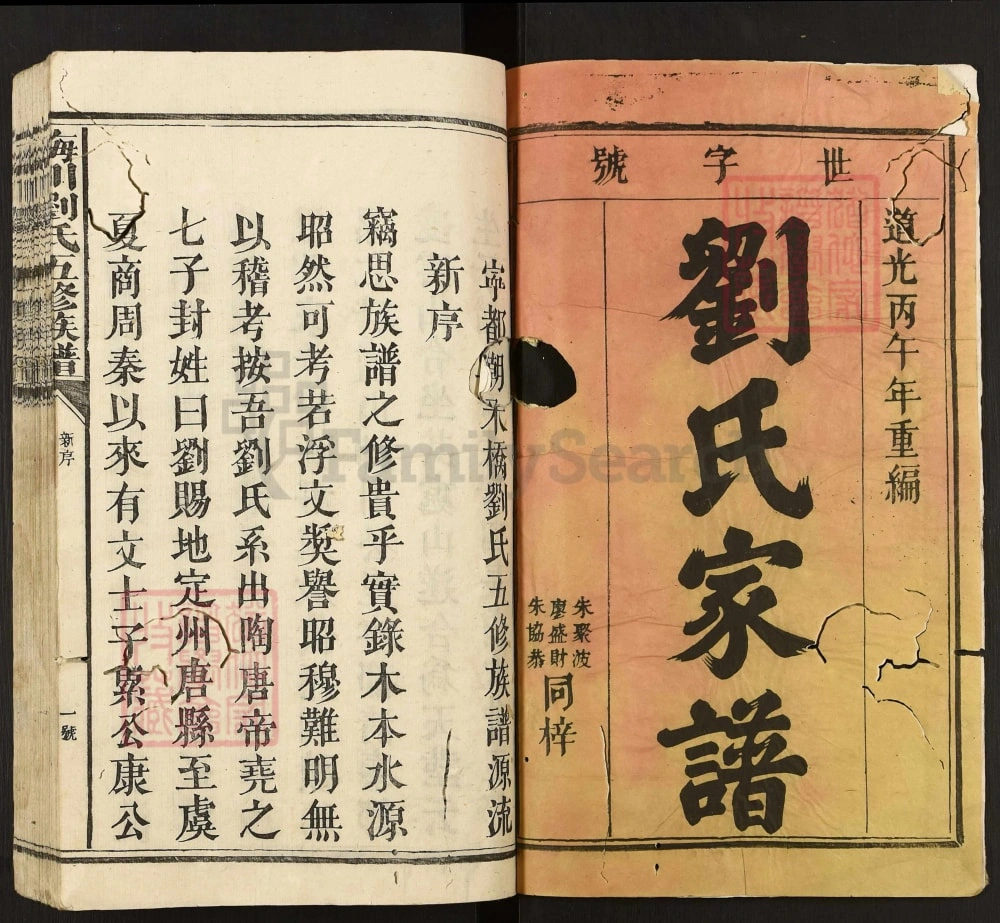 世字號
道光丙午年重編
劉氏家譜
朱聚波
廖盛財
朱協恭
同梓
寧都潮朱橋劉氏五修族譜源流
新序
竊思族譜之修貴乎實錄木本水源
昭然可考若浮文獎譽昭穆難明無
以稽考按吾劉氏系出陶唐帝堯之
七子封姓曰劉賜地定州唐縣至虞
夏商周秦以來有文士子累公康公
川劉氏五修族譜
新序
一號
FamilySearch